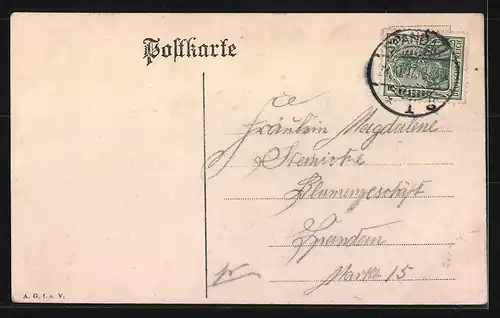 Postkarte
SPANDAU
Fräulein Magdalene
Steinicke
Blumengeschäft
Spandau
Markt 15
A. G. f. v. V.